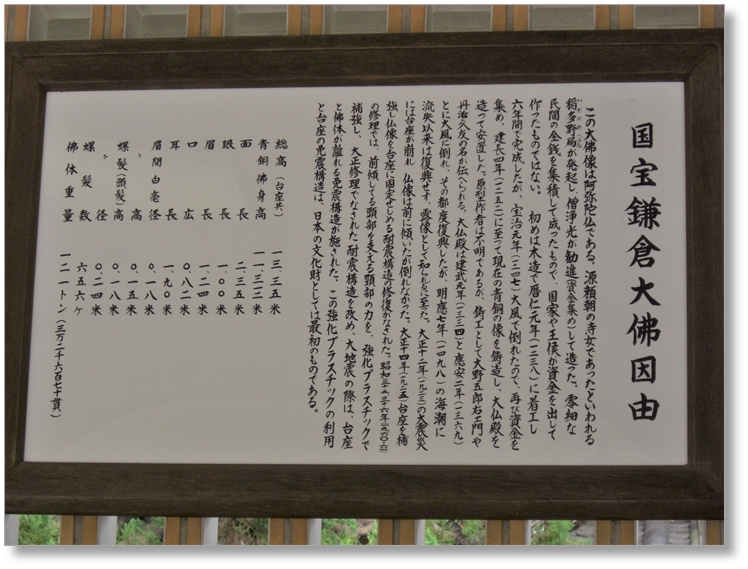 国宝鎌倉大佛因由
この大佛像は阿弥陀仏である。源頼朝の侍女であったといわれる
稲多野局が発起し、僧浄光が勧進(資金集め)して造った。零細な
民間の金銭を集積して成ったもので、国家や王侯が資金を出して
作ったものではない。初めは木造で暦仁元年(一二三八)に着工し
六年間で完成したが、宝治元年(一二四七)大風で倒れたので、再び資金を
集め、建長四年(一二五二)に至って現在の青銅の像を鋳造し、大仏殿を
造って安置した。原型作者は不明であるが、鋳工として大野五郎右エ門や
丹治久友の名が伝へられる。大仏殿は建武元年(一三三四)と應安二年(一三六九)
とに大風に倒れ、その都度復興したが、明應七年(一四九八)の海潮に
流失以来は復興せず、露像として知られるに至った。大正十二年(一九二三)の大震災
には台座が崩れ、仏像は前に傾いたが倒れなかった。大正十四年(一九二五)台座を補
強し仏像を台座に固定せしめる耐震構造の修復がなされた。昭和三十五・三十六年(一九六〇・六一)
の修理では、前傾してる頸部を支える頸部の力を、強化プラスチックで
補強し、大正修理でなされた耐震構造を改め、大地震の際は、台座
と佛体が離れる免震構造が施された。この強化プラスチックの利用
と台座の免震構造は、日本の文化財としては最初のものである。
総高(台座共) 一三、三五米
青銅佛身高 一一、三一二米
面長 二、三五米
眼長 一、〇〇米
眉長 一、二四米
口広 〇、八二米
耳長 一、九〇米
眉間白毫径 〇、一八米
〃高
螺髪(頭髪)高 〇、一八米
〃径 〇、二四米
螺髪数 六五六ヶ
佛体重量 一二一トン(三万二千六百七十貫)